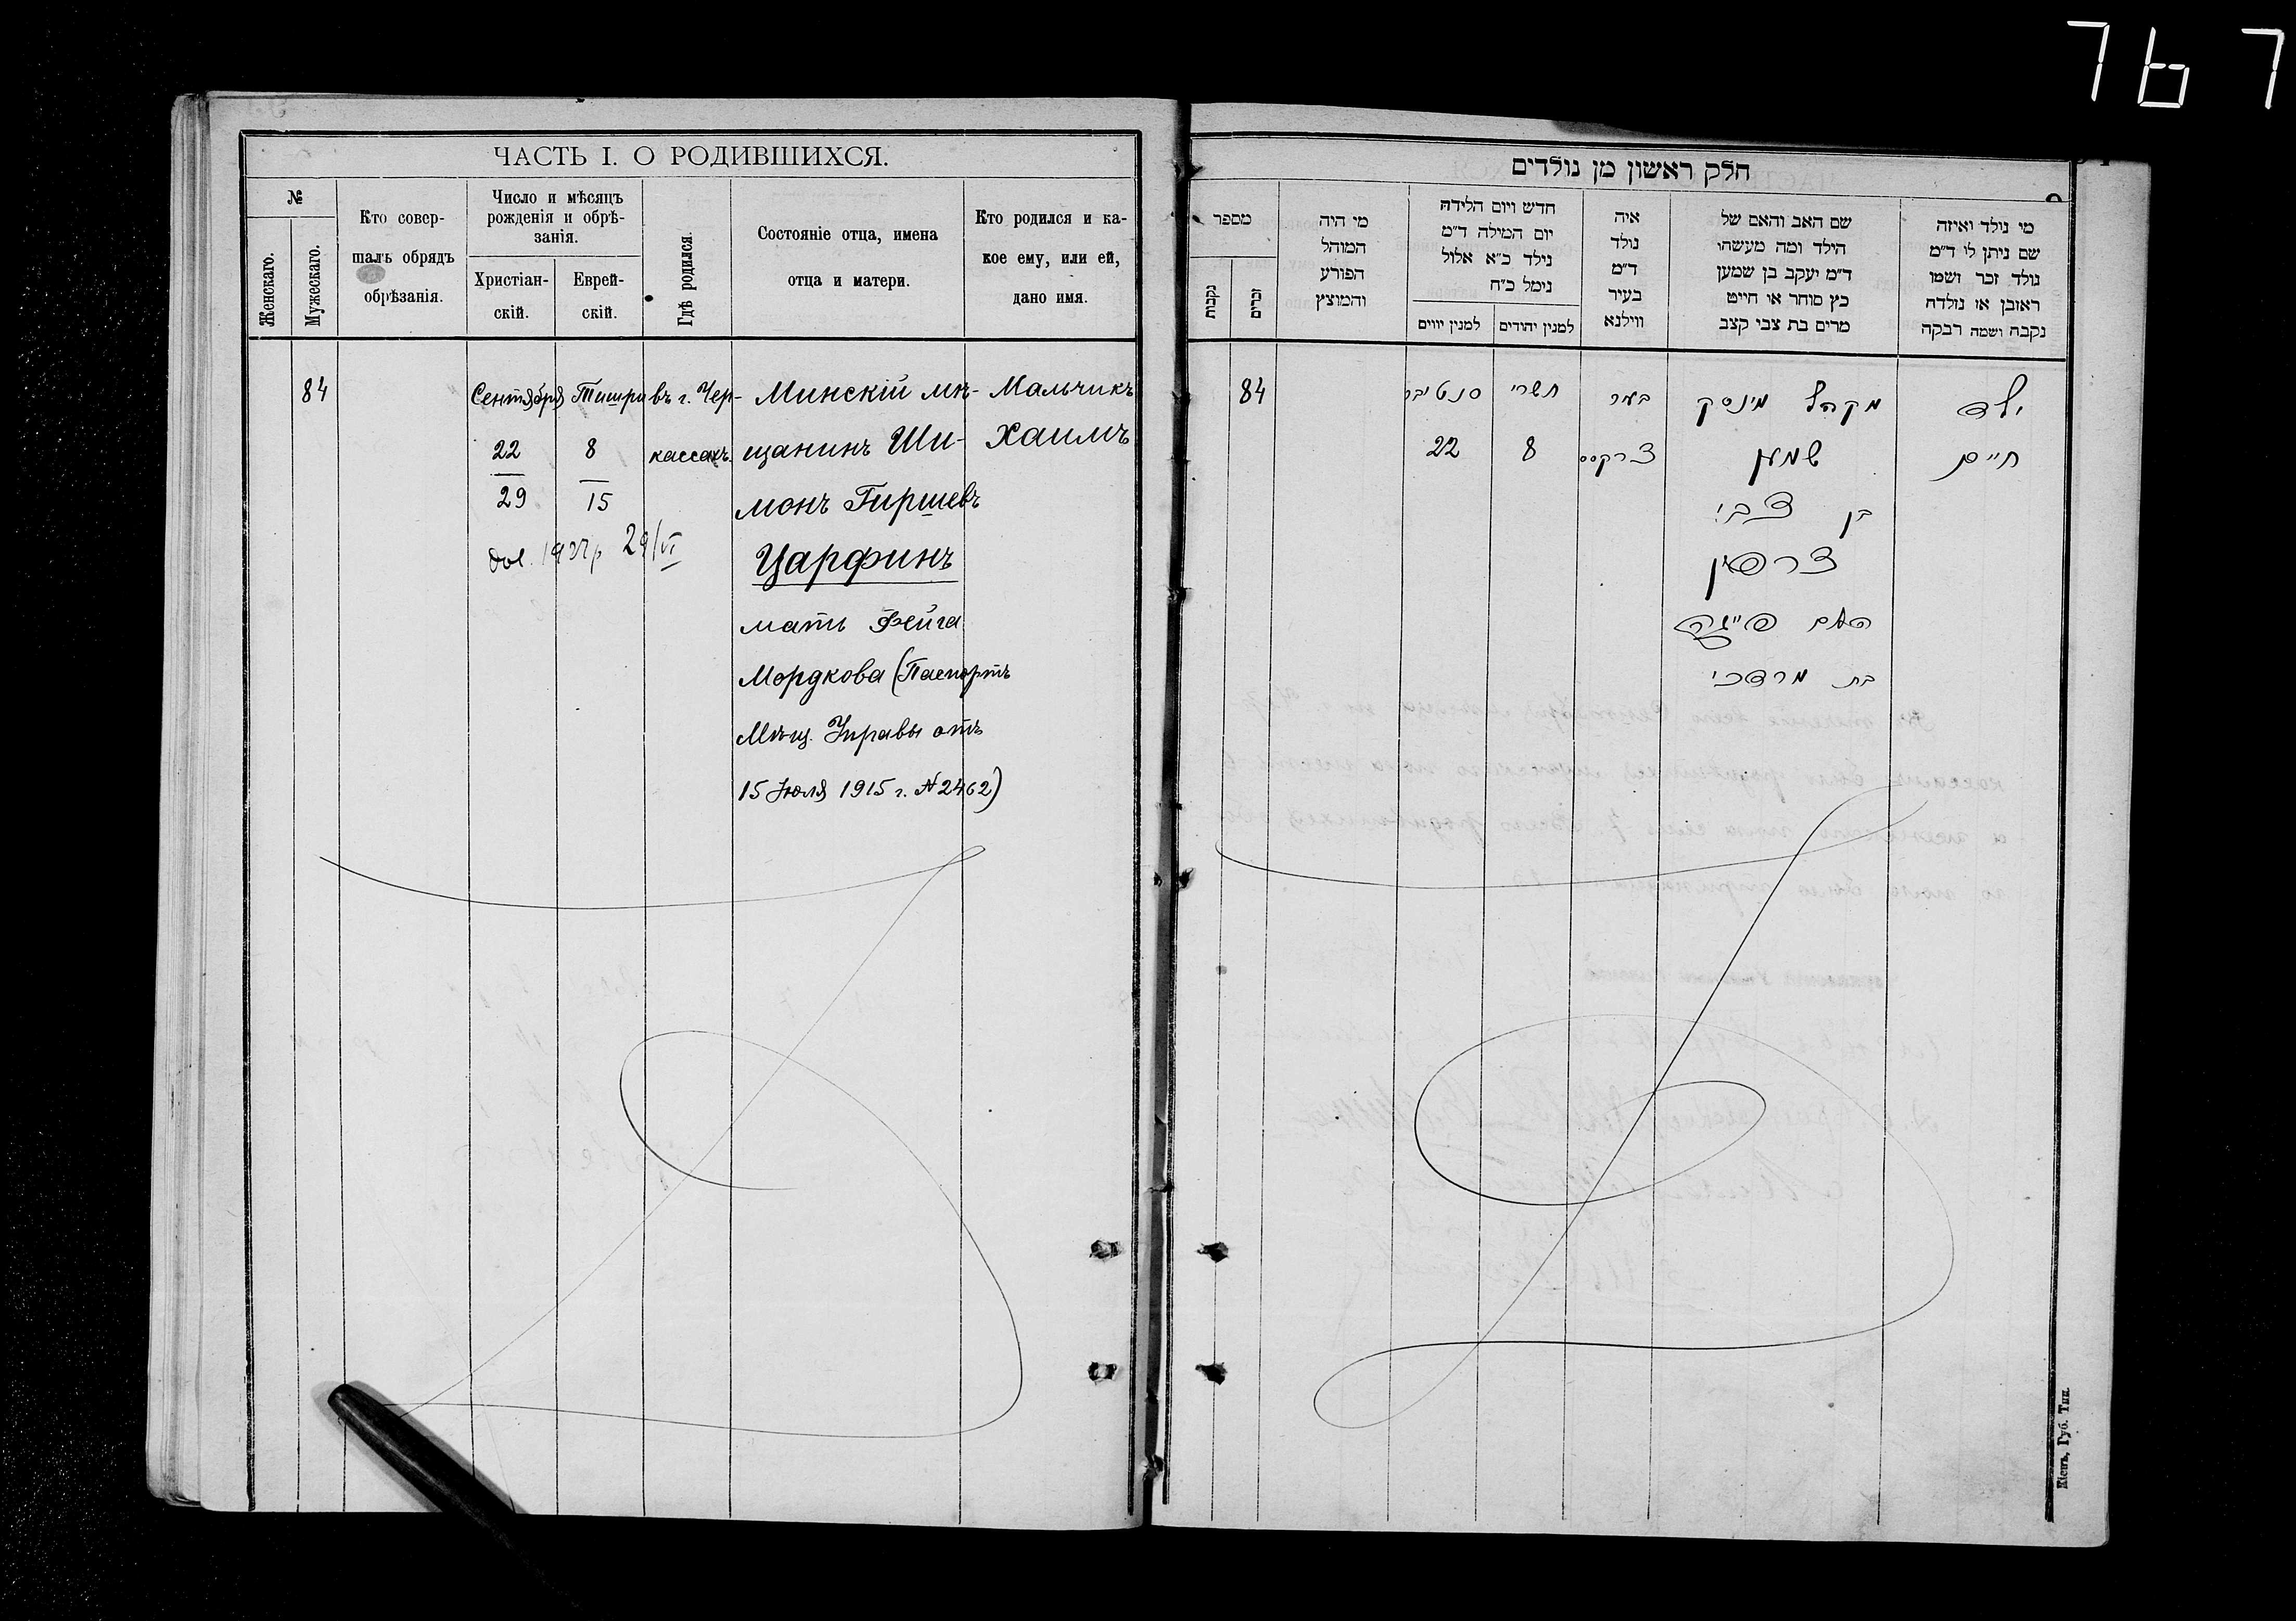 767
ЧАСТЬ I. О РОДИВШИХСЯ.
№
Женскаго.
Мужескаго.
Кто совер-
шалъ обрядъ
обрѣзанія.
Число и мѣсяцъ
рожденія и обрѣ-
занія.
Христіан-
скій.
Еврей-
скій.
Гдѣ родился.
Состояніе отца, имена
отца и матери.
Кто родился и ка-
кое ему, или ей,
дано имя.
84
Сентября
22
29
Тишри
8
15
въ г. Чер-
кассахъ.
Минскій мѣ-
щанинъ Ши-
монъ Гиршевъ
Царфинъ
мать Фейга
Мордкова (Паспортъ
Мѣщ. Управы отъ
15 Июля 1915 г. № 2462)
Мальчикъ
Хаимъ
29/VI
חלק ראשון מן נולדים
מי נולד ואיזה
שם ניתן לו ד"מ
נולד זכר ושמו
ראובן או נולדה
נקבה ושמה רבקה
שם האב והאם של
הילד ומה מעשהו
ד"מ יעקב בן שמעון
כץ סוחר או חייט
מרים בת צבי קצב
איה
נולד
ד"מ
בעיר
ווילנא
חדש ויום הלידה
יום המילה ד"מ
נילד כ"א אלול
נימל כ"ח
למנין יהודים
למנין יווים
מי היה
המוהל
הפורע
והמוצץ
מספר
זכרים
נקבות
ילד
חיים
מקהל מינסק
שמעון
בן צבי
צרפין
האם פייגה
בת מרדכי
בעיר
צרקסס
תשרי
8
סנטיבר
22
84
Кіевъ, Губ. Тип.